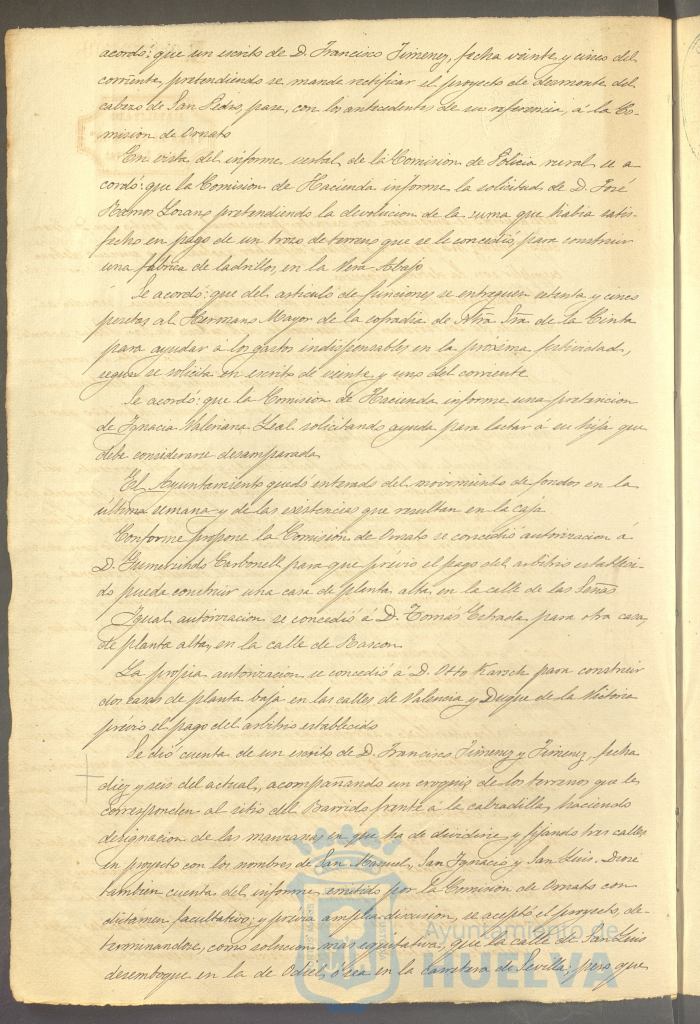 acordó: que un escrito de D. Francisco Jimenez, fecha veinte y cinco del
corriente, pretendiendo se mande rectificar el proyecto de desmonte del
cabezo de San Pedro, pase, con los antecedentes de su referencia, á la Co-
mision de Ornato
En vista del informe verbal de la Comision de Policia rural se a-
cordó: que la Comision de Hacienda informe la solicitud de D. José
Ramos Lozano pretendiendo la devolucion de la suma que habia satis-
fecho en pago de un trozo de terreno que se le concedió, para construir
una fábrica de ladrillos, en la Vera Abajo
Se acordó: que del articulo de funciones se entreguen setenta y cinco
pesetas al Hermano Mayor de la cofradia de Ntra Sra de la Cinta
para ayudar á los gastos indispensables en la próxima festividad,
segun se solicita en escrito de veinte y uno del corriente
Se acordó: que la Comision de Hacienda informe una pretension
de Ignacia Valeriana Leal solicitando ayuda para lactar á su hija que
debe considerarse desamparada
El Ayuntamiento quedó enterado del movimiento de fondos en la
última semana y de las existencias que resultan en la caja
Conforme propone la Comision de Ornato se concedió autorizacion á
D. Gumersindo Carbonell para que prévio el pago del arbitrio estableci-
do pueda construir una casa de planta alta, en la calle de las Señas
Igual autorizacion se concedió á D. Tomás Echada, para otra casa,
de planta alta, en la calle de Rascon
La propia autorizacion se concedió á D. Otto Karsck para construir
dos casas de planta baja en las calles de Valencia y Duque de la Victoria
prévio el pago del arbitrio establecido
Se dió cuenta de un escrito de D. Francisco Jimenez y Jimenez, fecha
diez y seis del actual, acompañando un croquis de los terrenos que le
corresponden al sitio del Barrido frente á la calzadilla, haciendo
designacion de las manzanas en que ha de dividirse, y fijando tres calles
en proyecto con los nombres de San Manuel, San Ignacio y San Luis. Diose
tambien cuenta del informe emitido por la Comision de Ornato con
dictamen facultativo; y prévia amplia discusion, se aceptó el proyecto, de-
terminandose, como solucion mas equitativa, que la calle de San Luis
desemboque en la de Odiel, ó sea en la carretera de Sevilla; pero que
Ayuntamiento de
HUELVA